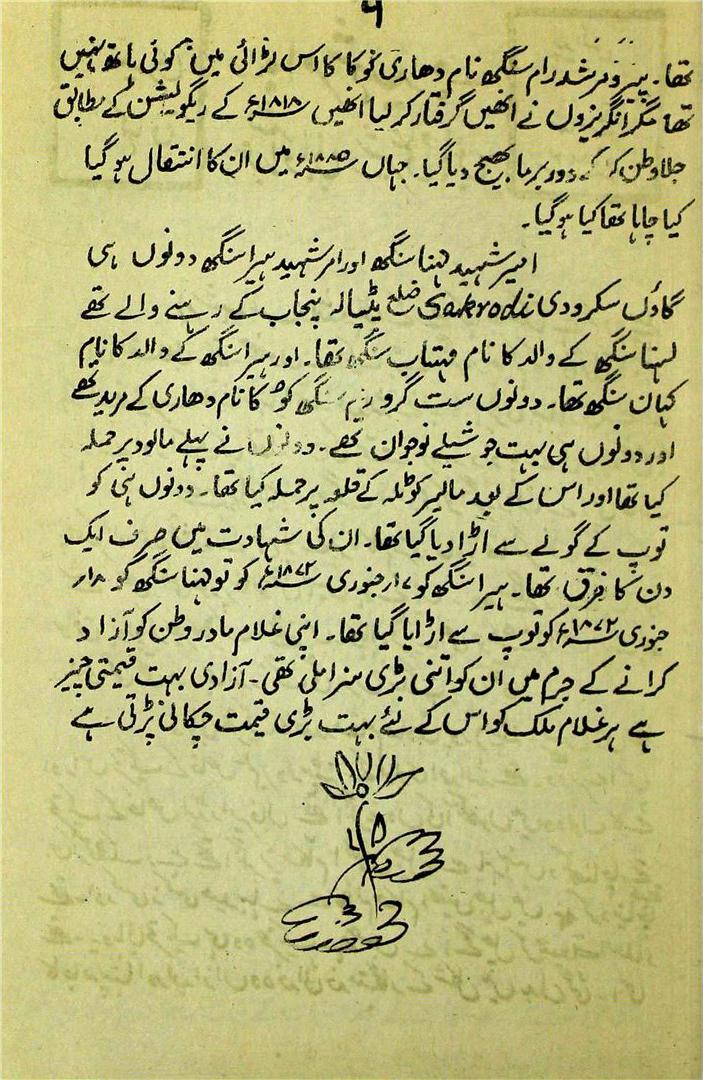 ۶
تھا۔ پیر و مرشد رام سنگھ نام دھاری کوکا کا اس لڑائی میں کوئی ہاتھ نہیں
تھا مگر انگریزوں نے انھیں گرفتار کر لیا انھیں ۱۸۱۸ء کے ریگولیشن کے مطابق
جلا وطن کر کے دور برما بھیج دیا گیا۔ جہاں ۱۸۸۵ء میں ان کا انتقال ہو گیا
کیا چاہا تھا کیا ہو گیا۔
امر شہید لہنا سنگھ اور امر شہید ہیرا سنگھ دونوں ہی
گاؤں سکرودی Sakrodi ضلع پٹیالہ پنجاب کے رہنے والے تھے
لہنا سنگھ کے والد کا نام مہتاب سنگھ تھا۔ اور ہیرا سنگھ کے والد کا نام
کہان سنگھ تھا۔ دونوں ست گرو رام سنگھ کوکا نام دھاری کے مرید تھے
اور دونوں ہی بہت جوشیلے نوجوان تھے۔ دونوں نے پہلے مالود پر حملہ
کیا تھا اور اس کے بعد مالیر کوٹلہ کے قلعہ پر حملہ کیا تھا۔ دونوں ہی کو
توپ کے گولے سے اڑا دیا گیا تھا۔ ان کی شہادت میں صرف ایک
دن کا فرق تھا۔ ہیرا سنگھ کو ۱۷؍ جنوری ۱۸۷۲ء کو تو لہنا سنگھ کو ۱۸؍
جنوری ۱۸۷۲ء کو توپ سے اڑایا گیا تھا۔ اپنی غلام مادر وطن کو آزاد
کرانے کے جرم میں ان کو اتنی بڑی سزا ملی تھی۔ آزادی بہت قیمتی چیز
ہے ہر غلام ملک کو اس کے لئے بہت بڑی قیمت چکانی پڑتی ہے